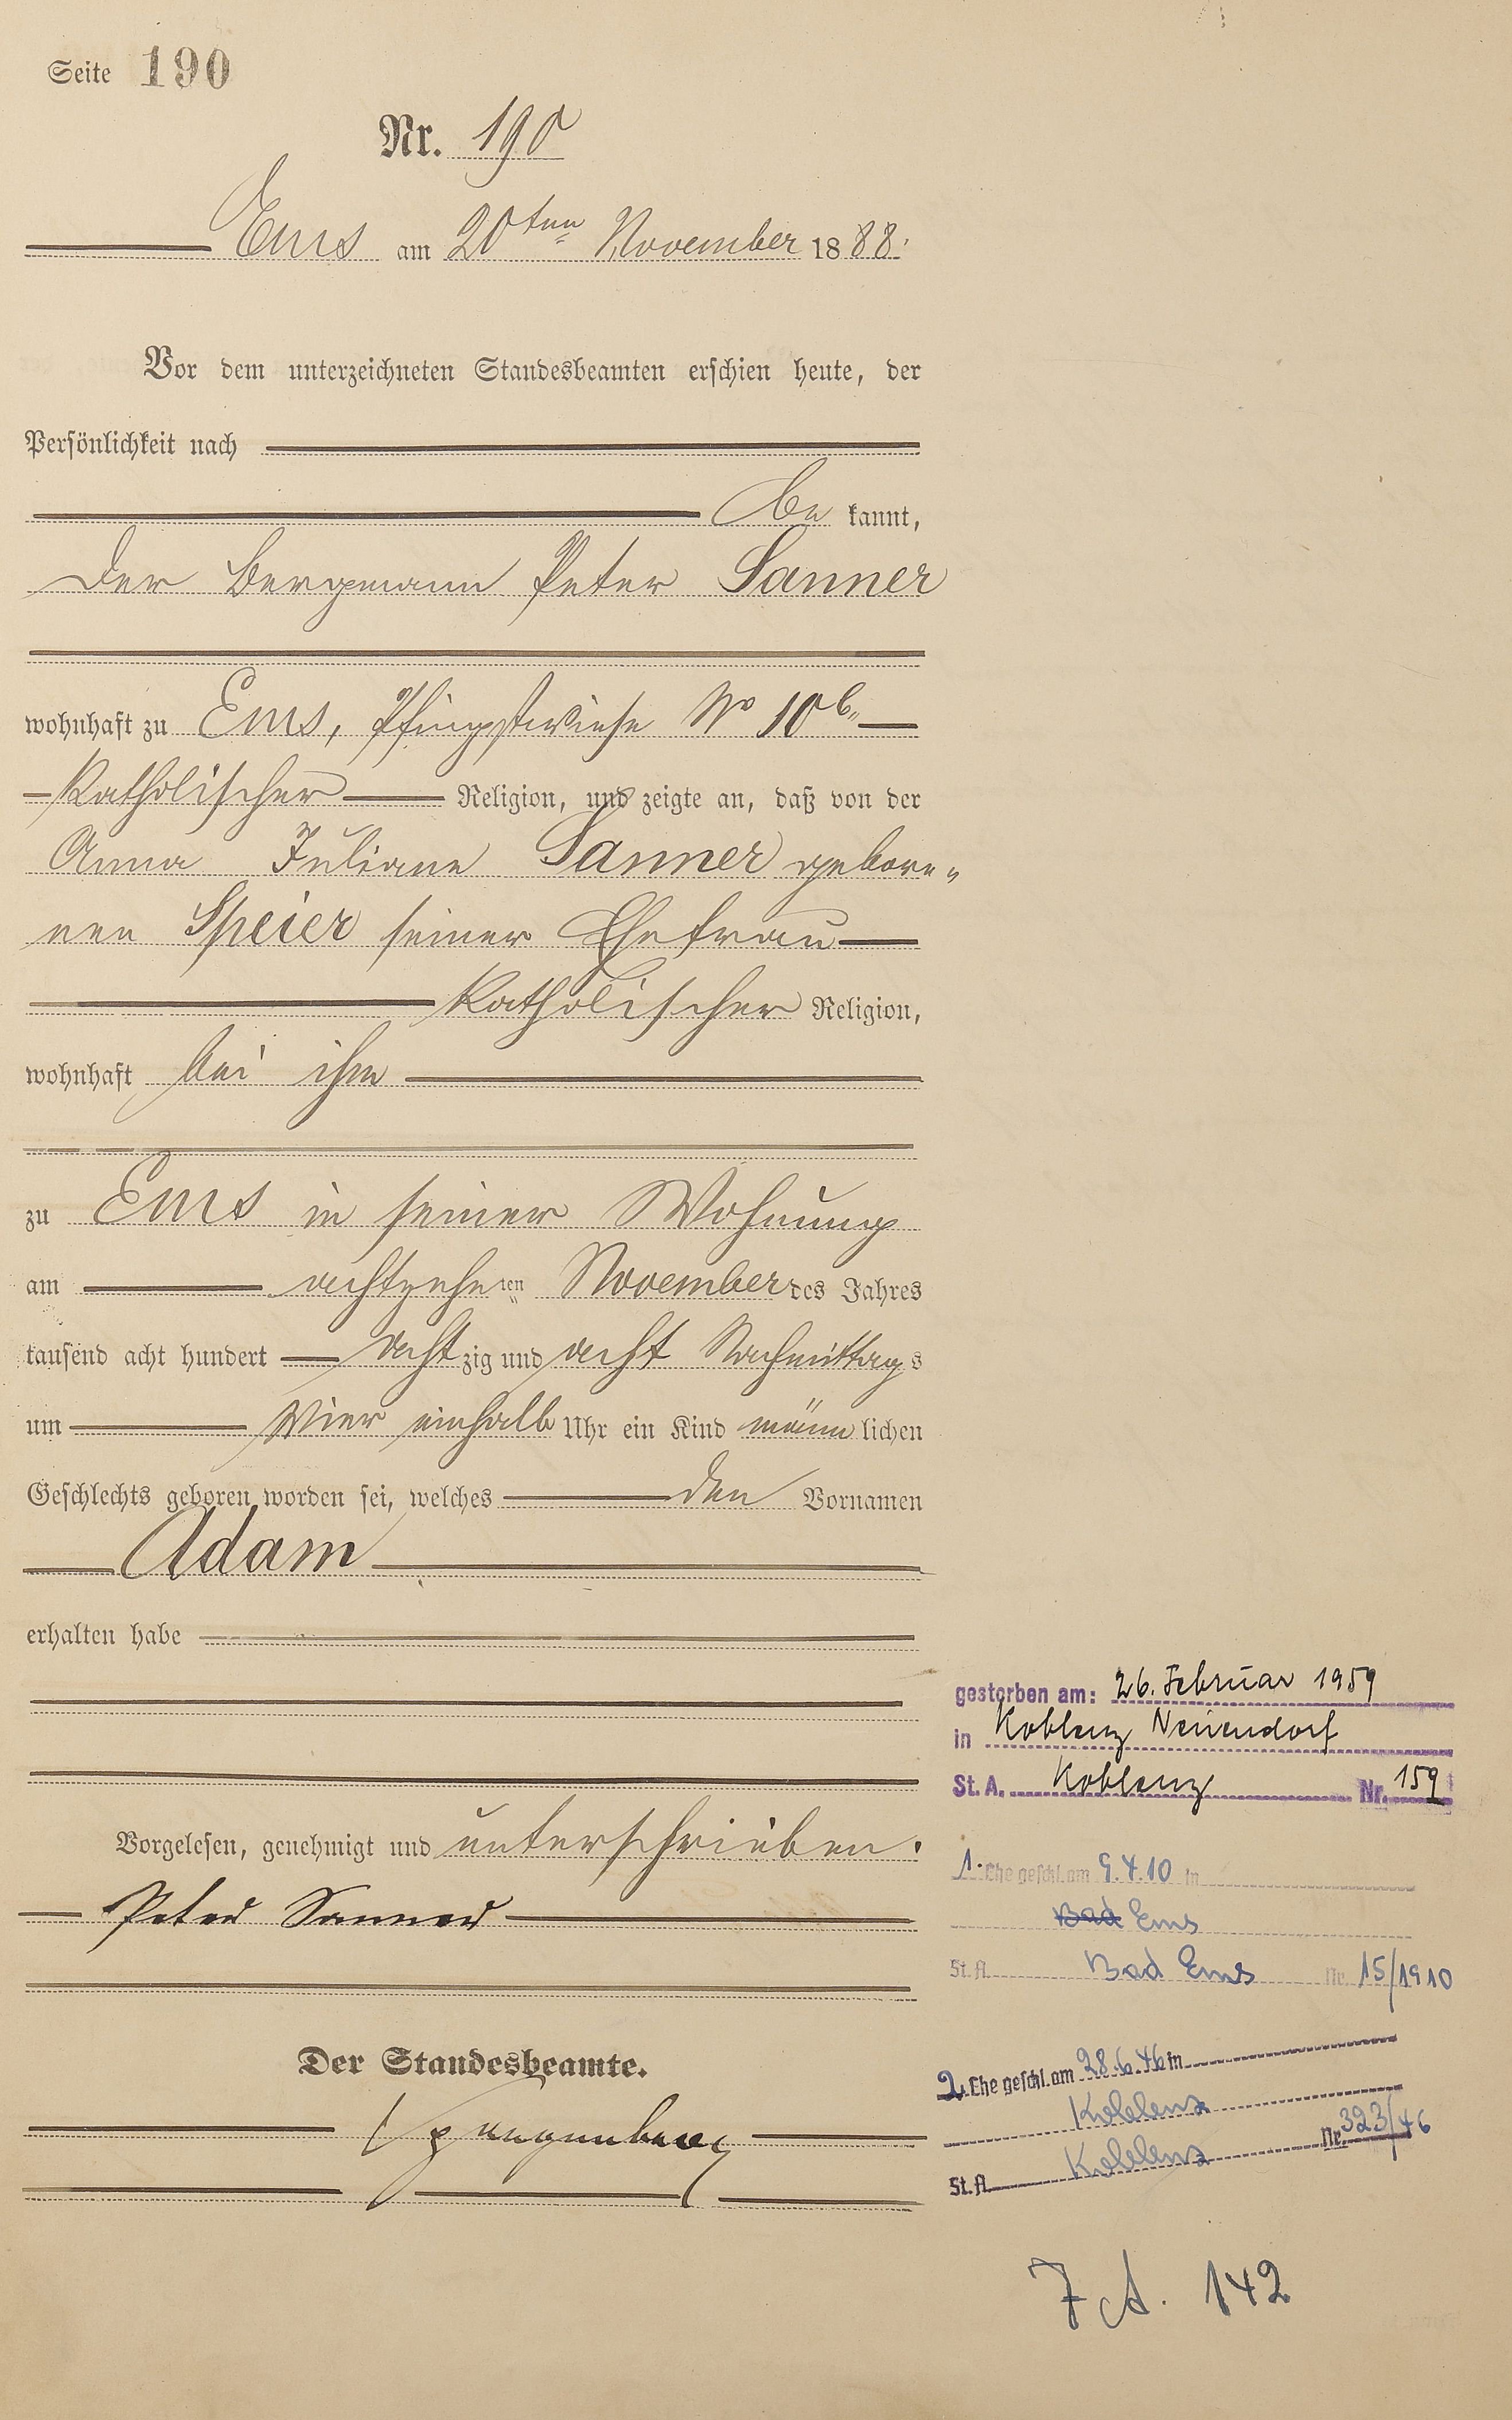 Seite 190
Nr. 190
Ems am 20ten November 1888.
Vor dem unterzeichneten Standesbeamten erschien heute, der
Persönlichkeit nach
be kannt,
der Bergmann Peter Sanner
wohnhaft zu Ems, Pfingstwiese No 10b
katholischer Religion, und zeigte an, daß von der
Anna Juliane Sanner gebore-
nen Speier seiner Ehefrau
katholischer Religion,
wohnhaft bei ihm
zu Ems in seiner Wohnung
am achtzehnten November des Jahres
tausend acht hundert achtzig und acht Nachmittags
um vier einhalb Uhr ein Kind männlichen
Geschlechts geboren worden sei, welches den Vornamen
Adam
erhalten habe
Vorgelesen, genehmigt und unterschrieben.
Peter Sanner
Der Standesbeamte.
Spangenberg
gestorben am: 26. Februar 1959
in Koblenz Neuendorf
St. A. Koblenz Nr. 159
1. Ehe geschl. am 9.4.10 in
Bad Ems
St. A. Bad Ems Nr. 15/1910
2. Ehe geschl. am 28.6.46 in
Koblenz
St. A. Koblenz Nr. 323/46
142